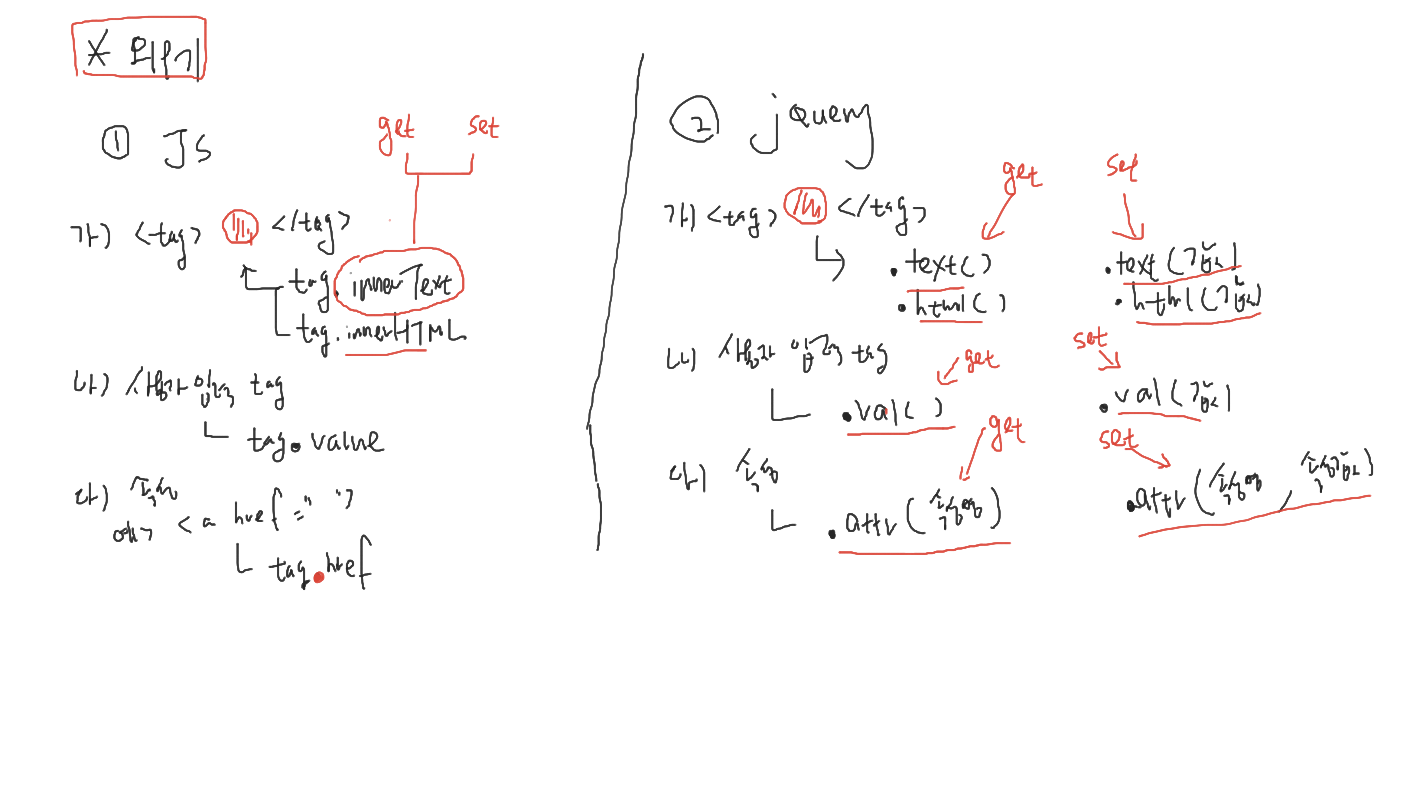 * 외우기
① JS
get set
가) <tag> </tag>
tag.innerText
tag.innerHTML
나) 사용자 입력 tag
tag.value
다) 속성
예> <a href=" ">
tag.href
② jquery
get set
가) <tag> </tag>
.text() .text(값)
.html() .html(값)
나) 사용자 입력 tag
get set
.val() .val(값)
다) 속성
get set
.attr(속성명) .attr(속성명, 속성값)